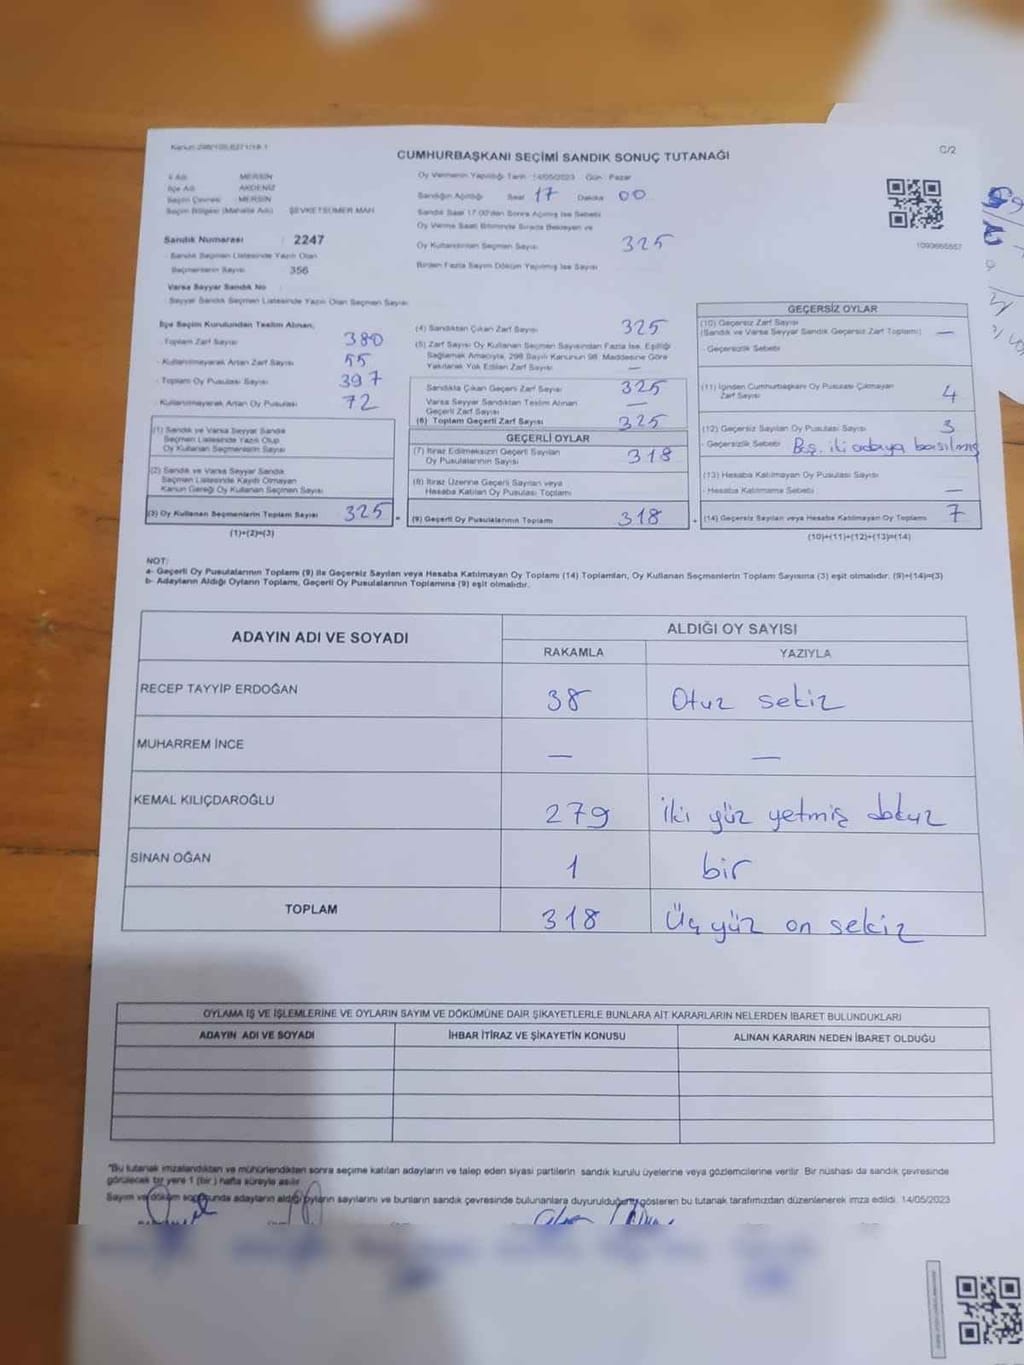 CUMHURBAŞKANI SEÇİMİ SANDIK SONUÇ TUTANAĞI
C/2
İl Adı MERSİN
İlçe Adı AKDENİZ
Seçim Çevresi MERSİN
Seçim Bölgesi (Mahalle Adı) ŞEVKETSÜMER MAH
Sandık Numarası 2247
Sandık Seçmen Listesinde Yazılı Olan
Seçmenlerin Sayısı 356
Varsa Seyyar Sandık No
Seyyar Sandık Seçmen Listesinde Yazılı Olan Seçmen Sayısı
Oy Vermenin Yapıldığı Tarih 14/05/2023 Gün Pazar
Sandığın Açıldığı Saat 17 Dakika 00
Sandık Saat 17.00'den Sonra Açılmış İse Sebebi
Oy Verme Saati Bitiminde Sırada Bekleyen ve
Oy Kullandırılan Seçmen Sayısı 325
Birden Fazla Sayım Döküm Yapılmış İse Sayısı
1093665557
İlçe Seçim Kurulundan Teslim Alınan;
Toplam Zarf Sayısı 380
Kullanılmayarak Artan Zarf Sayısı 55
Toplam Oy Pusulası Sayısı 397
Kullanılmayarak Artan Oy Pusulası 72
(1) Sandık ve Varsa Seyyar Sandık
Seçmen Listesinde Yazılı Olup
Oy Kullanan Seçmenlerin Sayısı
(2) Sandık ve Varsa Seyyar Sandık
Seçmen Listesinde Kayıtlı Olmayan
Kanun Gereği Oy Kullanan Seçmenlerin Sayısı
(3) Oy Kullanan Seçmenlerin Toplam Sayısı 325
(1)+(2)=(3)
(4) Sandıktan Çıkan Zarf Sayısı 325
(5) Zarf Sayısı Oy Kullanan Seçmen Sayısından Fazla İse, Eşitliği
Sağlamak Amacıyla, 298 Sayılı Kanunun 98. Maddesine Göre
Yakılarak Yok Edilen Zarf Sayısı —
Sandıkta Çıkan Geçerli Zarf Sayısı 325
Varsa Seyyar Sandıktan Teslim Alınan
Geçerli Zarf Sayısı —
(6) Toplam Geçerli Zarf Sayısı 325
GEÇERLİ OYLAR
(7) İtiraz Edilmeksizin Geçerli Sayılan
Oy Pusulalarının Sayısı 318
(8) İtiraz Üzerine Geçerli Sayılan veya
Hesaba Katılan Oy Pusulası Toplamı
(9) Geçerli Oy Pusulalarının Toplamı 318
GEÇERSİZ OYLAR
(10) Geçersiz Zarf Sayısı
(Sandık ve Varsa Seyyar Sandık Geçersiz Zarf Toplamı) —
- Geçersizlik Sebebi
(11) İçinden Cumhurbaşkanı Oy Pusulası Çıkmayan
Zarf Sayısı 4
(12) Geçersiz Sayılan Oy Pusulası Sayısı 3
- Geçersizlik Sebebi Boş, iki adaya basılmış
(13) Hesaba Katılmayan Oy Pusulası Sayısı
- Hesaba Katılmama Sebebi —
(14) Geçersiz Sayılan veya Hesaba Katılmayan Oy Toplamı 7
(10)+(11)+(12)+(13)=(14)
NOT:
a- Geçerli Oy Pusulalarının Toplamı (9) ile Geçersiz Sayılan veya Hesaba Katılmayan Oy Toplamı (14) Toplamları, Oy Kullanan Seçmenlerin Toplam Sayısına (3) eşit olmalıdır. (9)+(14)=(3)
b- Adayların Aldığı Oyların Toplamı, Geçerli Oy Pusulalarının Toplamına (9) eşit olmalıdır.
ADAYIN ADI VE SOYADI
ALDIĞI OY SAYISI
RAKAMLA YAZIYLA
RECEP TAYYİP ERDOĞAN 38 Otuz sekiz
MUHARREM İNCE — —
KEMAL KILIÇDAROĞLU 279 İki yüz yetmiş dokuz
SİNAN OĞAN 1 bir
TOPLAM 318 Üç yüz on sekiz
OYLAMA İŞ VE İŞLEMLERİNE VE OYLARIN SAYIM VE DÖKÜMÜNE DAİR ŞİKAYETLERLE BUNLARA AİT KARARLARIN NELERDEN İBARET BULUNDUKLARI
ADAYIN ADI VE SOYADI İHBAR İTİRAZ VE ŞİKAYETİN KONUSU ALINAN KARARIN NEDEN İBARET OLDUĞU
*Bu tutanak imzalandıktan ve mühürlendikten sonra seçime katılan adayların ve talep eden siyasi partilerin sandık kurulu üyelerine veya gözlemcilerine verilir. Bir nüshası da sandık çevresinde
görülecek bir yere 1 (bir) hafta süreyle asılır.
Sayım ve döküm sonucunda adayların aldığı oyların sayılarını ve bunların sandık çevresinde bulunanlara duyurulduğunu gösteren bu tutanak tarafımızdan düzenlenerek imza edildi. 14/05/2023